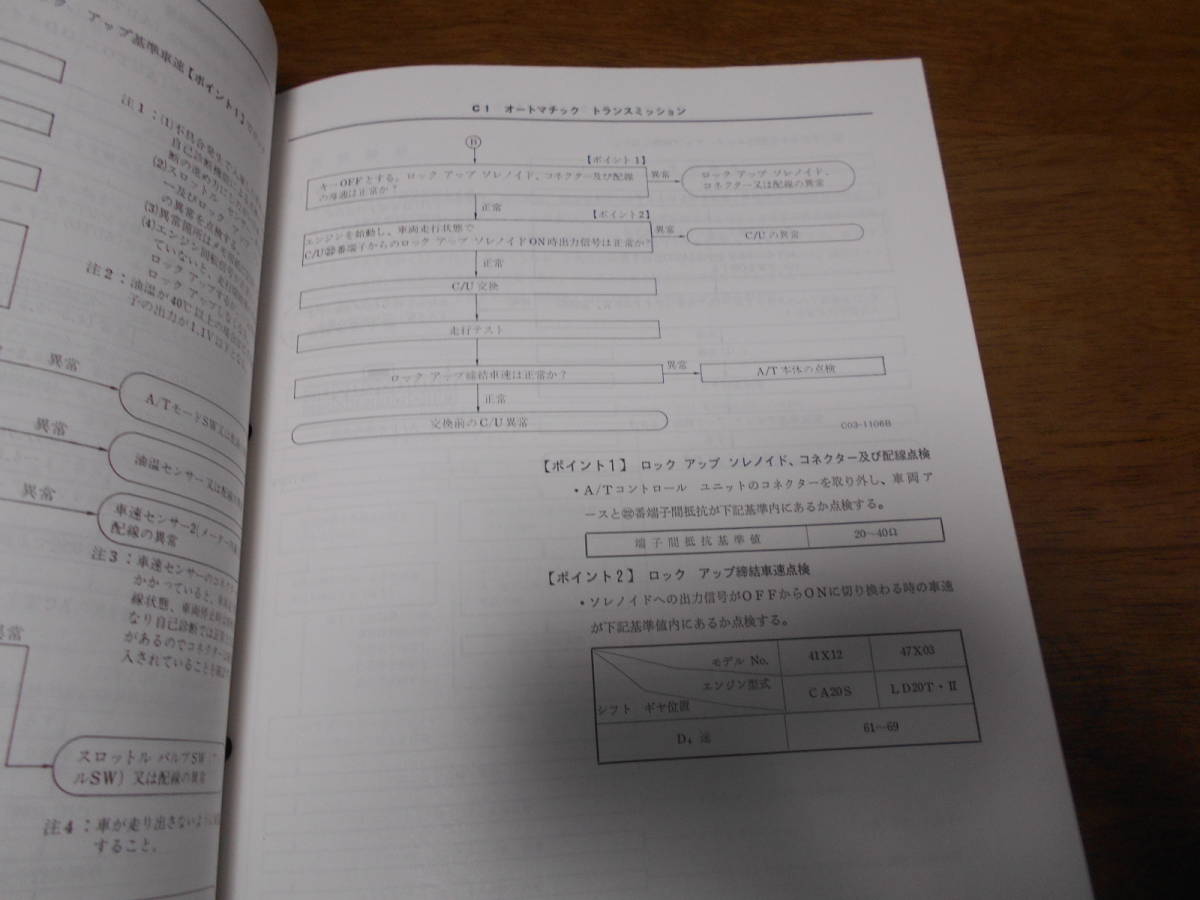 アップ基準車速【ポイント1】
注1：(1)不具合発生
自己診断機能による
断の進め方に
(2)スロットル センサ
ー及びロック
の異常を点検する
(3)異常箇所は
(4)エンジン回転信号が
ていないと、走行
ロック アップする
ロック アップしなく
注2：油温が40℃以上の場合
子の出力が1.1V以下となる
異常
A/TモードSW又は配線
異常
油温センサー又は配線
異常
車速センサー2(メーター
配線の異常
注3：車速センサーのコネクター
かかっていると、
線状態、車両停止時
なり自己診断では正常と
があるのでコネクター
入されていることを
異常
スロットル バルブSW
ルSW）又は配線の異常
注4：車が走り出さないように
すること。
C1 オートマチック トランスミッション
B
【ポイント1】
キーOFFとする。ロック アップ ソレノイド、コネクター及び配線
の導通は正常か？
異常
ロック アップ ソレノイド、
コネクター又は配線の異常
正常
【ポイント2】
エンジンを始動し、車両走行状態で
C/U㉒番端子からのロック アップ ソレノイドON時出力信号は正常か？
異常
C/Uの異常
正常
C/U交換
走行テスト
ロック アップ締結車速は正常か？
異常
A/T本体の点検
正常
交換前のC/U異常
C03-1106B
【ポイント1】 ロック アップ ソレノイド、コネクター及び配線点検
・A/Tコントロール ユニットのコネクターを取り外し、車両ア
ースと㉒番端子間抵抗が下記基準内にあるか点検する。
端子間抵抗基準値 20〜40Ω
【ポイント2】 ロック アップ締結車速点検
・ソレノイドへの出力信号がOFFからONに切り換わる時の車速
が下記基準値内にあるか点検する。
モデル No. 41X12 47X03
エンジン型式 CA20S LD20T・Ⅱ
シフト ギヤ位置
D₄ 速 61〜69